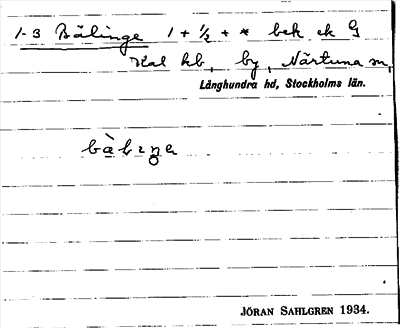 1-3 Bälinge 1 + ½ + * bek ek G
Kal kb, by, Närtuna sn,
Långhundra hd, Stockholms län.
JÖRAN SAHLGREN 1934.